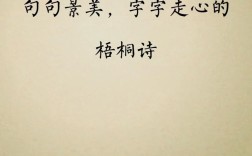 句句景美，字字走心的
梧桐诗